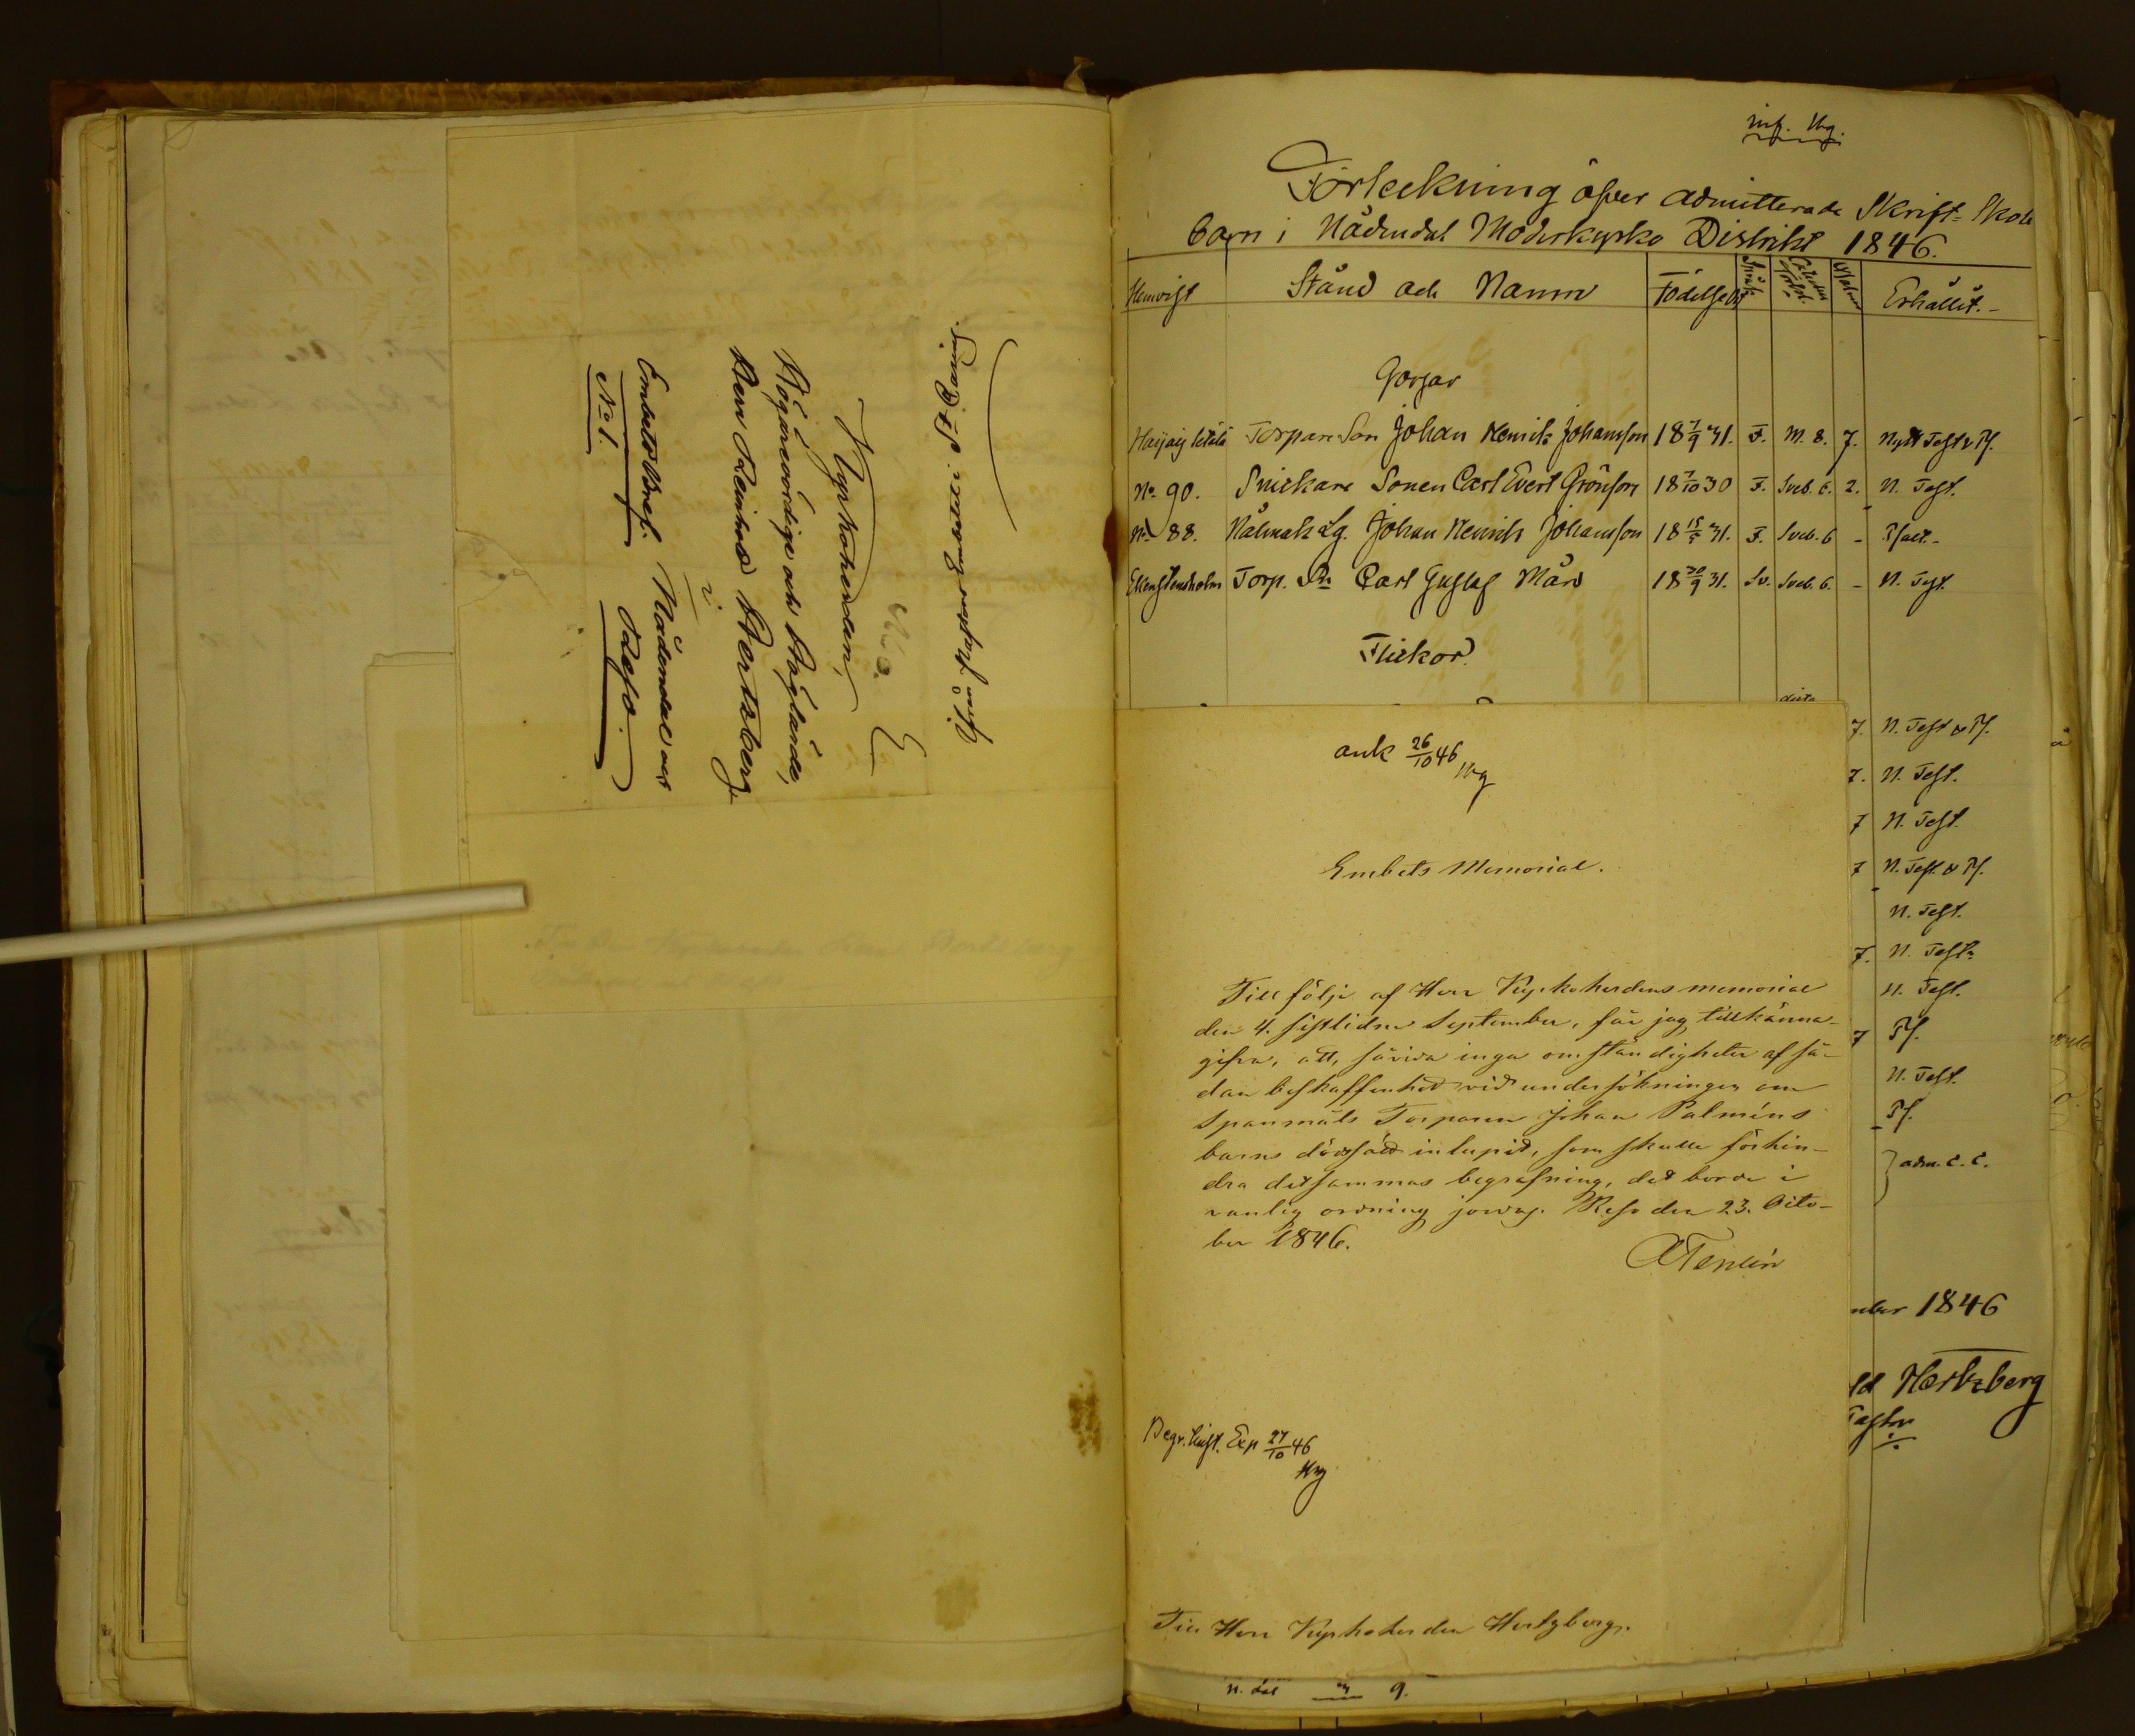 Från Prosten i
Kyrkoherden,
Högärevördige och Höglärde,
Herr Reinhold Hertzberg
i
Nådendal och
Embets Bref. Reso.
No 1.
inf. Hbg.
Förteckning öfver admitterade Skrift-Skole
barn i Nådendal Moderkyrko Distrikt 1846.
Hemvist Stånd och Namn Födelse Erhållit.
Gossar
Torpare Son Johan Henrik Johansson 18 7/9 31. F. M. 8. 7. Nytt Test & Ps.
No 90. Snickare Sonen Carl Evert Grönfors 18 7/10 30 F. Sveb. 6. 2. N. Test.
No 88. Johan Henrik Johansson 18 15/5 31. F. Sveb. 6 - Psalt.
Torp. Sn Carl Gustaf Mård 18 30/9 31. Sv. Sveb. 6. - N. Test.
Flickor.
7. N. Test & Ps.
7. N. Test.
7 N. Test.
7 N. Test. & Ps.
N. Test.
7. N. Test.
N. Test.
7 Ps.
N. Test.
Ps.
adm. c. c.
mber 1846
ld Hertzberg
Pastor
ank 26/10 46 Hbg
Embets Memorial.
Till följe af Herr Kyrkoherdens memorial
den 4. sistlidne September, får jag tillkänna-
gifva, att, såvida inga omständigheter af så-
dan beskaffenhet vid undersökningen om
Spanmåls Torparen Johan Palméns
barns dödssätt inlupit, som skulle förhin-
dra detsammas begrafning, det borde i
vanlig ordning jordas. Reso den 23. Octo-
ber 1846.
Begr. Exp 27/10 46
Hbg
Till Herr Kyrkoherden Hertzberg.
9.